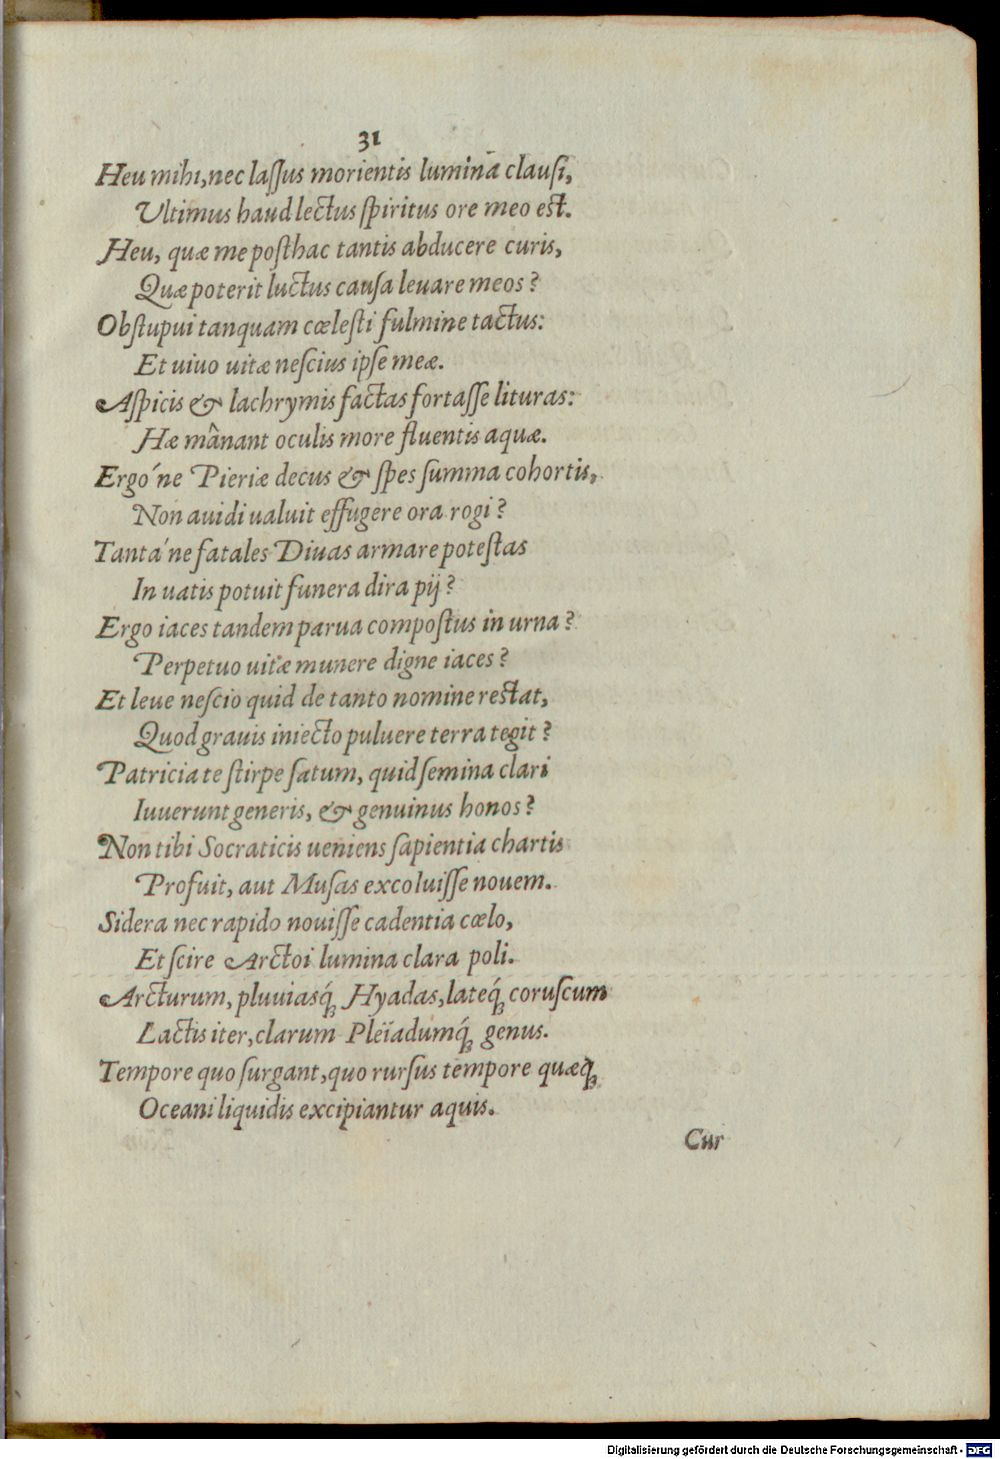 31
Heu mihi, nec lassus morientis lumina clausi,
Ultimus haud lectus spiritus ore meo est.
Heu, quæ me posthac tantis abducere curis,
Quæ poterit luctus causa leuare meos?
Obstupui tanquam cœlesti fulmine tactus:
Et uiuo uitæ nescius ipse meæ.
Aspicis & lachrymis factas fortasse lituras:
Hæ mânant oculis more fluentis aquæ.
Ergó ne Pieriæ decus & spes summa cohortis,
Non auidi ualuit effugere ora rogi?
Tantá ne fatales Diuas armare potestas
In uatis potuit funera dira pij?
Ergo iaces tandem parua compostus in urna?
Perpetuo uitæ munere digne iaces?
Et leue nescio quid de tanto nomine restat,
Quod grauis iniecto puluere terra tegit?
Patricia te stirpe satum, quid semina clari
Iuuerunt generis, & genuinus honos?
Non tibi Socraticis ueniens sapientia chartis
Profuit, aut Musas excoluisse nouem.
Sidera nec rapido nouisse cadentia cœlo,
Et scire Arctoi lumina clara poli.
Arcturum, pluuiasq́; Hyadas, lateq́; coruscum
Lactis iter, clarum Pleïadumq́; genus.
Tempore quo surgant, quo rursus tempore quæq;
Oceani liquidis excipiantur aquis.
Cur
Digitalisierung gefördert durch die Deutsche Forschungsgemeinschaft - DFG